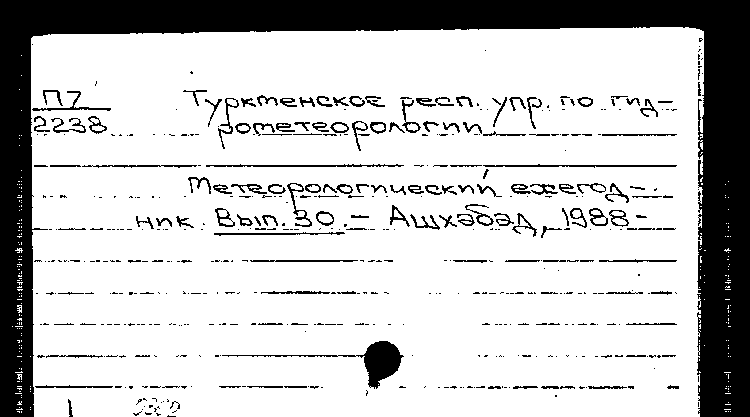 П7
2238
Туркменское респ. упр. по гид-
рометеорологии.
Метеорологический ежегод-
ник. Вып. 30. - Ашхабад, 1988-
1